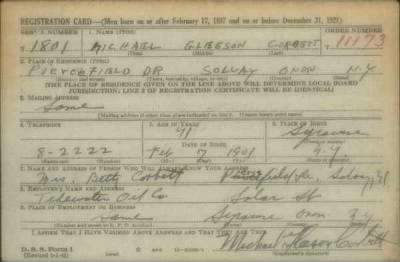 REGISTRATION CARD—(Men born on or after February 17, 1897 and on or before December 31, 1921)
SERIAL NUMBER 1. NAME (Print) ORDER NUMBER
1801 MICHAEL GLEESON CORBETT 11173
2. PLACE OF RESIDENCE (Print)
PIERCEFIELD DR SOLVAY ONON N.Y
(Number and street) (Town, township, village, or city) (County) (State)
[THE PLACE OF RESIDENCE GIVEN ON THE LINE ABOVE WILL DETERMINE LOCAL BOARD
JURISDICTION; LINE 2 OF REGISTRATION CERTIFICATE WILL BE IDENTICAL]
3. MAILING ADDRESS
Same
[Mailing address if other than place indicated on line 2. If same insert word same]
4. TELEPHONE 5. AGE IN YEARS 6. PLACE OF BIRTH
41 Syracuse
DATE OF BIRTH
8-2222 Feb 7 1901 N.Y
7. NAME AND ADDRESS OF PERSON WHO WILL ALWAYS KNOW YOUR ADDRESS
Mrs. Betty Corbett Piercefield Dr, Solvay, NY
8. EMPLOYER'S NAME AND ADDRESS
Tidewater Oil Co Solar St
9. PLACE OF EMPLOYMENT OR BUSINESS
Same Syracuse Onon N.Y
I AFFIRM THAT I HAVE VERIFIED ABOVE ANSWERS AND THAT THEY ARE TRUE.
D. S. S. Form 1 Michael Gleeson Corbett